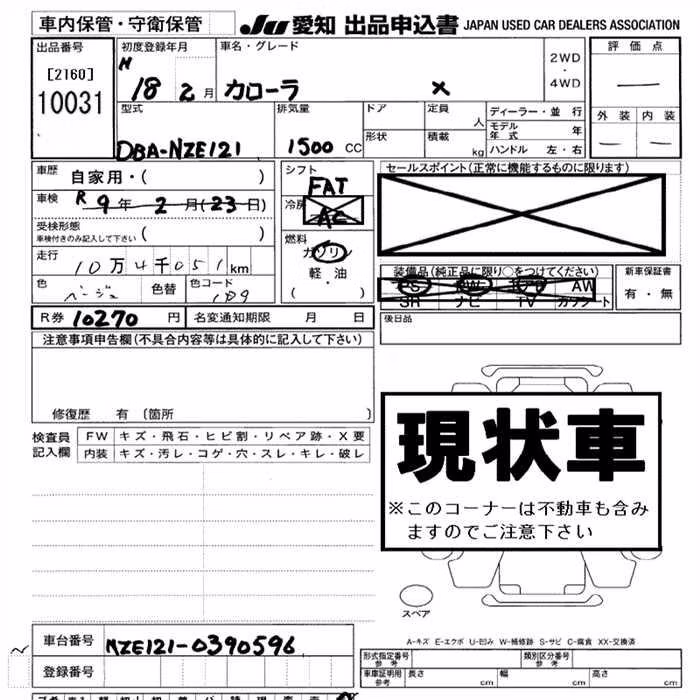 車内保管・守衛保管 JU 愛知 出品申込書 JAPAN USED CAR DEALERS ASSOCIATION
出品番号 初度登録年月 車名・グレード 2WD・4WD 評価点
[2160] H 18 2月 カローラ X —
10031 外装 内装
型式 排気量 ドア 定員 人 ディーラー・並行
モデル年式 年
DBA-NZE121 1500 CC 形状 積載 kg ハンドル 左・右 — —
車歴 自家用・( ) シフト FAT セールスポイント(正常に機能するものに限ります)
車検 R 9年 2月(23日) 冷房 AC
受検形態 車検付きのみ記入して下さい ( ) 燃料 ガソリン
走行 10万4千051km 軽・油 装備品(純正品に限り○をつけてください) 新車保証書
色 ベージュ 色替 色コード ( ) PS PW AW 有・無
SR ナビ TV カワシート
R券 10270 円 名変通知期限 月 日 後日品
注意事項申告欄(不具合内容等は具体的に記入して下さい)
修復歴 有 〔箇所 〕
現状車
※このコーナーは不動車も含みますのでご注意下さい
検査員記入欄 FW キズ・飛石・ヒビ割・リペア跡・X要
内装 キズ・汚レ・コゲ・穴・スレ・キレ・破レ
スペア
A-キズ E-エクボ U-凹み W-補修跡 S-サビ C-腐食 XX-交換済
車台番号 NZE121-0390596
登録番号
形式指定番号 参考 類別区分番号 参考
車庫証明用 参考 長さ cm 幅 cm 高さ cm